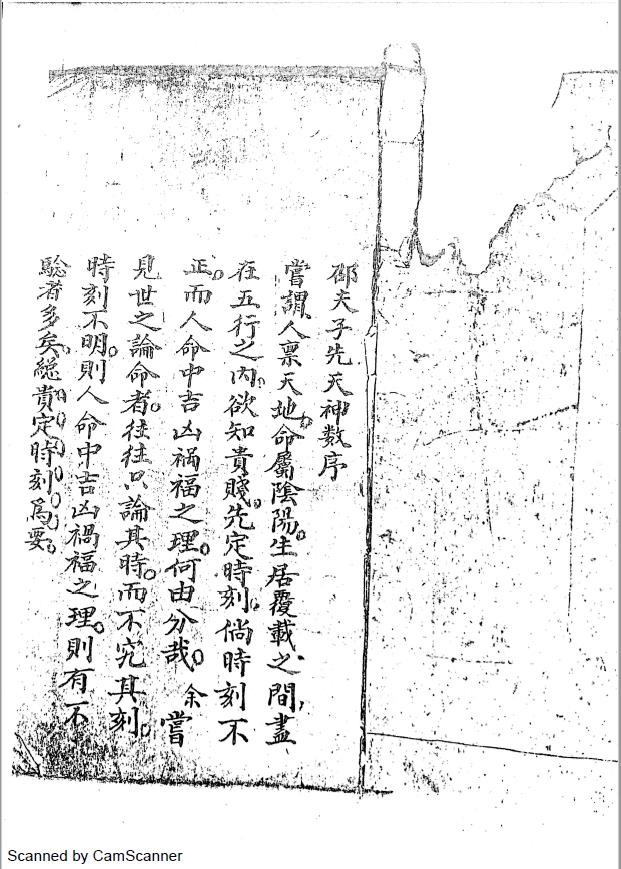 邵夫子先天神数序
嘗謂人禀天地。命屬陰陽。生居覆載之間，盡
在五行之内。欲知貴賤。先定時刻。倘時刻不
正。而人命中吉凶禍福之理。何由分哉。余嘗
見世之論命者。往往只論其時。而不究其刻。
時刻不明。則人命中吉凶禍福之理。則有不
驗者多矣。總貴定時刻為要。
Scanned by CamScanner